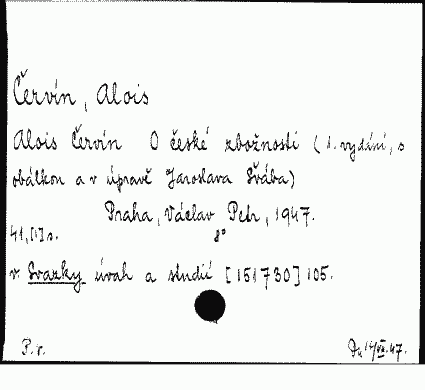 Červín, Alois
Alois Červín O české zbožnosti (1. vydání, s
obálkou a v úpravě Jaroslava Švába)
Praha, Václav Petr, 1947.
41, [1] s. 8°
v. Svazky úvah a studií [151730] 105.
P. r. 47.